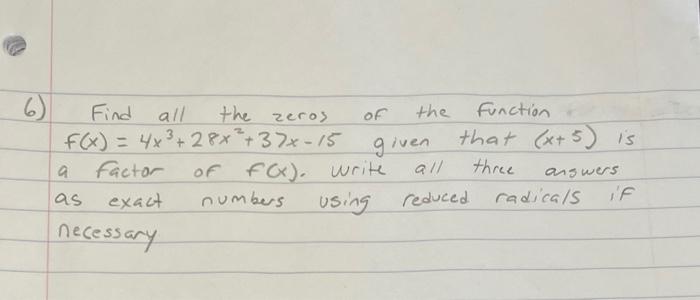 6) Find all the zeros of the function
f(x) = 4x³+28x²+37x-15 given that (x+5) is
a factor of f(x). Write all three answers
as exact numbers using reduced radicals if
necessary